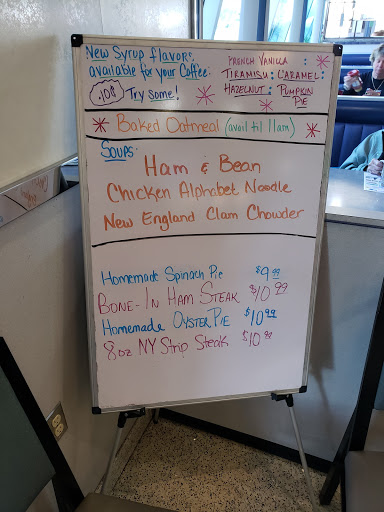 New Syrup flavors,
available for your Coffee.
.10¢ Try some!
FRENCH VANILLA :
TIRAMISU : CARAMEL :
HAZELNUT : PUMPKIN
PIE
Baked Oatmeal (avail til 11am)
SOUPS:
Ham & Bean
Chicken Alphabet Noodle
New England Clam Chowder
Homemade Spinach Pie $9.99
BONE-IN HAM STEAK $10.99
Homemade OYSTER PIE $10.99
8oz NY Strip Steak $10.99